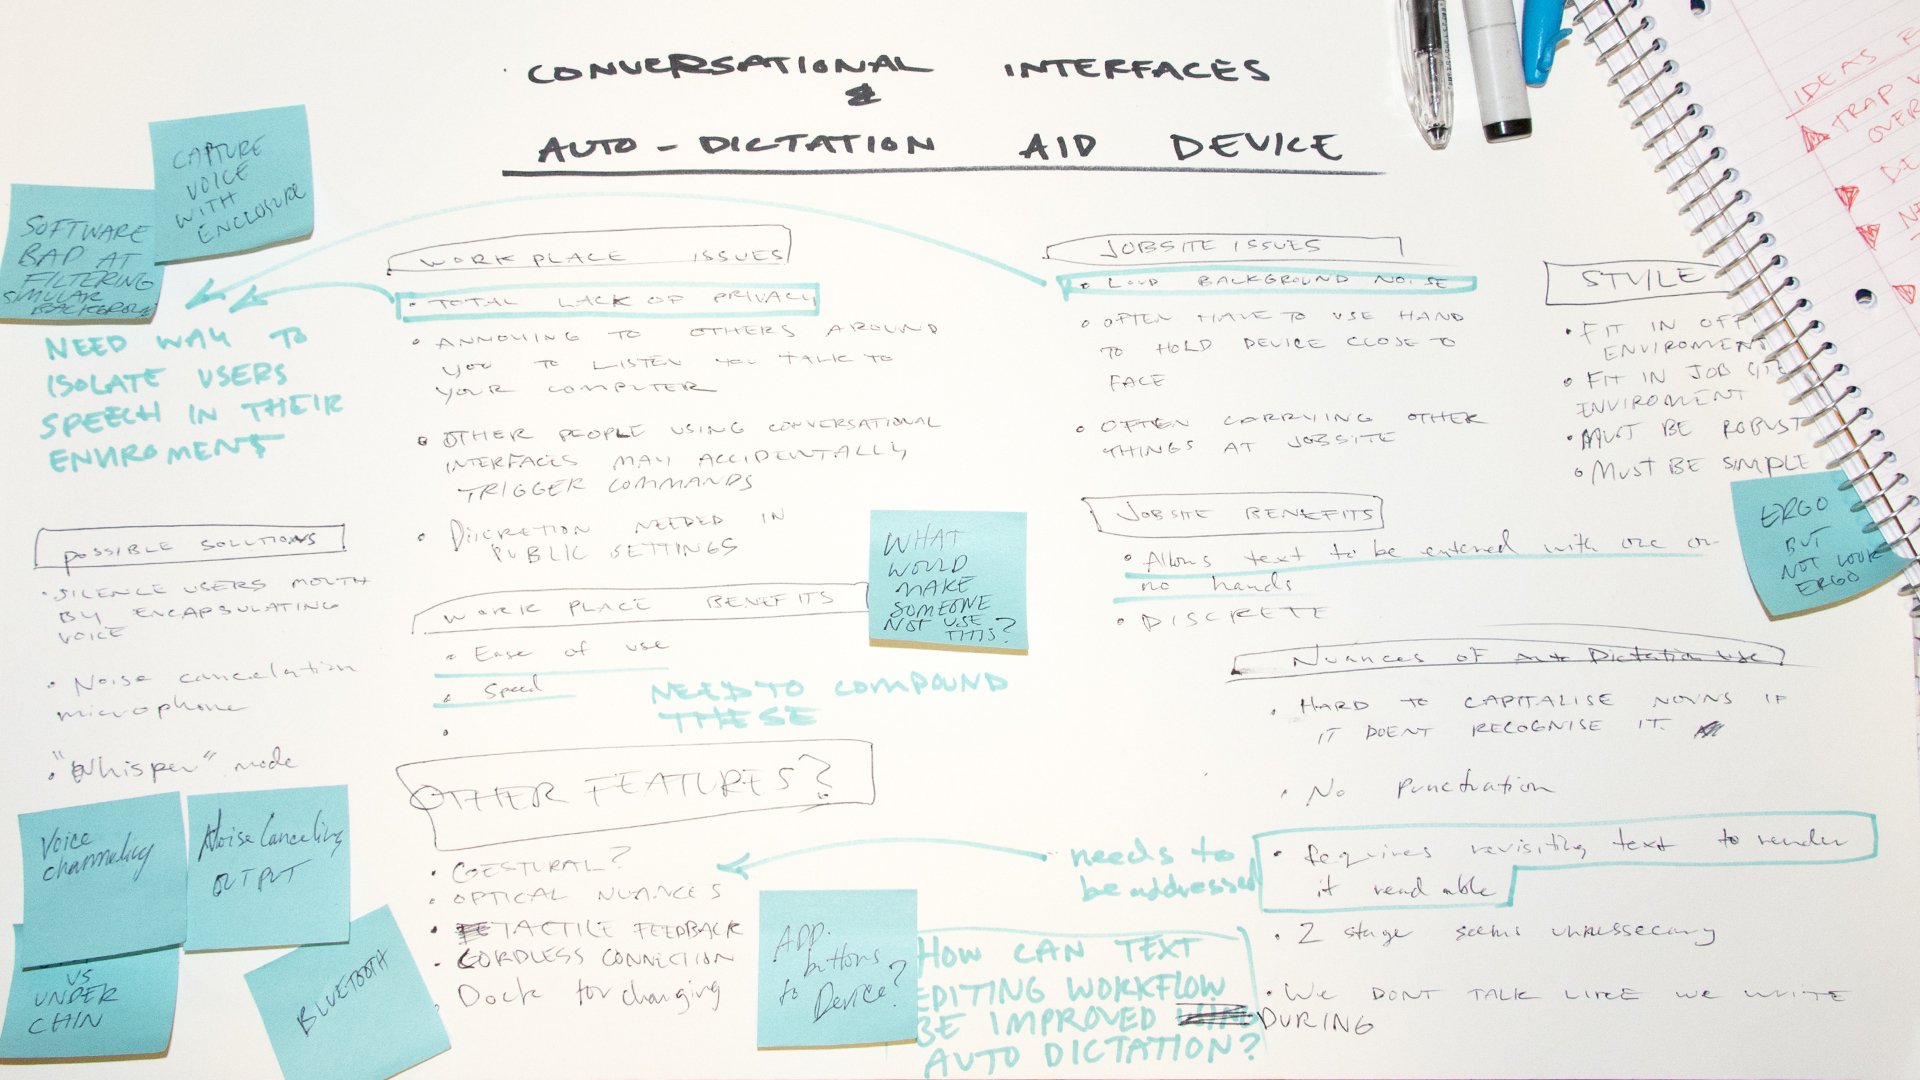 CONVERSATIONAL INTERFACES
&
AUTO-DICTATION AID DEVICE
CAPTURE
VOICE
WITH
ENCLOSURE
SOFTWARE
BAD AT
FILTERING
SIMULAR
NEED WAY TO
ISOLATE USERS
SPEECH IN THEIR
ENVIROMENT
POSSIBLE SOLUTIONS
• SILENCE USERS MOUTH
BY ENCAPSULATING
VOICE
• Noise cancelation
microphone
• "Whisper" mode
Voice
channeling
Noise Canceling
OUTPUT
VS
UNDER
CHIN
BLUETOOTH
WORK PLACE ISSUES
• TOTAL LACK OF PRIVACY
• ANNOYING TO OTHERS AROUND
YOU TO LISTEN YOU TALK TO
YOUR COMPUTER
• OTHER PEOPLE USING CONVERSATIONAL
INTERFACES MAY ACCIDENTALLY
TRIGGER COMMANDS
• DISCRETION NEEDED IN
PUBLIC SETTINGS
WORK PLACE BENEFITS
• Ease of use
• Speed
•
NEED TO COMPOUND
THESE
WHAT
WOULD
MAKE
SOMEONE
NOT USE
THIS?
OTHER FEATURES?
• GESTURAL?
• OPTICAL NUANCES
• TACTILE FEEDBACK
• CORDLESS CONNECTION
• Dock for charging
APP.
buttons
to
Device?
JOBSITE ISSUES
• LOUD BACKGROUND NOISE
• OFTEN HAVE TO USE HAND
TO HOLD DEVICE CLOSE TO
FACE
• OFTEN CARRYING OTHER
THINGS AT JOBSITE
JOBSITE BENEFITS
• Allows text to be entered with one or
no hands
• DISCRETE
Nuances OF Auto Dictation Use
• HARD TO CAPITALISE NOUNS IF
IT DOENT RECOGNISE IT.
• No Punctuation
• Requires revisiting text to render
it readable
needs to
be addressed
• 2 stage seems unnessecary
• WE DONT TALK LIKE WE WRITE
HOW CAN TEXT
EDITING WORKFLOW
BE IMPROVED DURING
AUTO DICTATION?
STYLE
• FIT IN OFF
ENVIROMENT
• FIT IN JOB SITE
INVIROMENT
• MUST BE ROBUST
• MUST BE SIMPLE
ERGO
BUT
NOT LOOK
ERGO
IDEAS F
TRAP V
OVER
DE